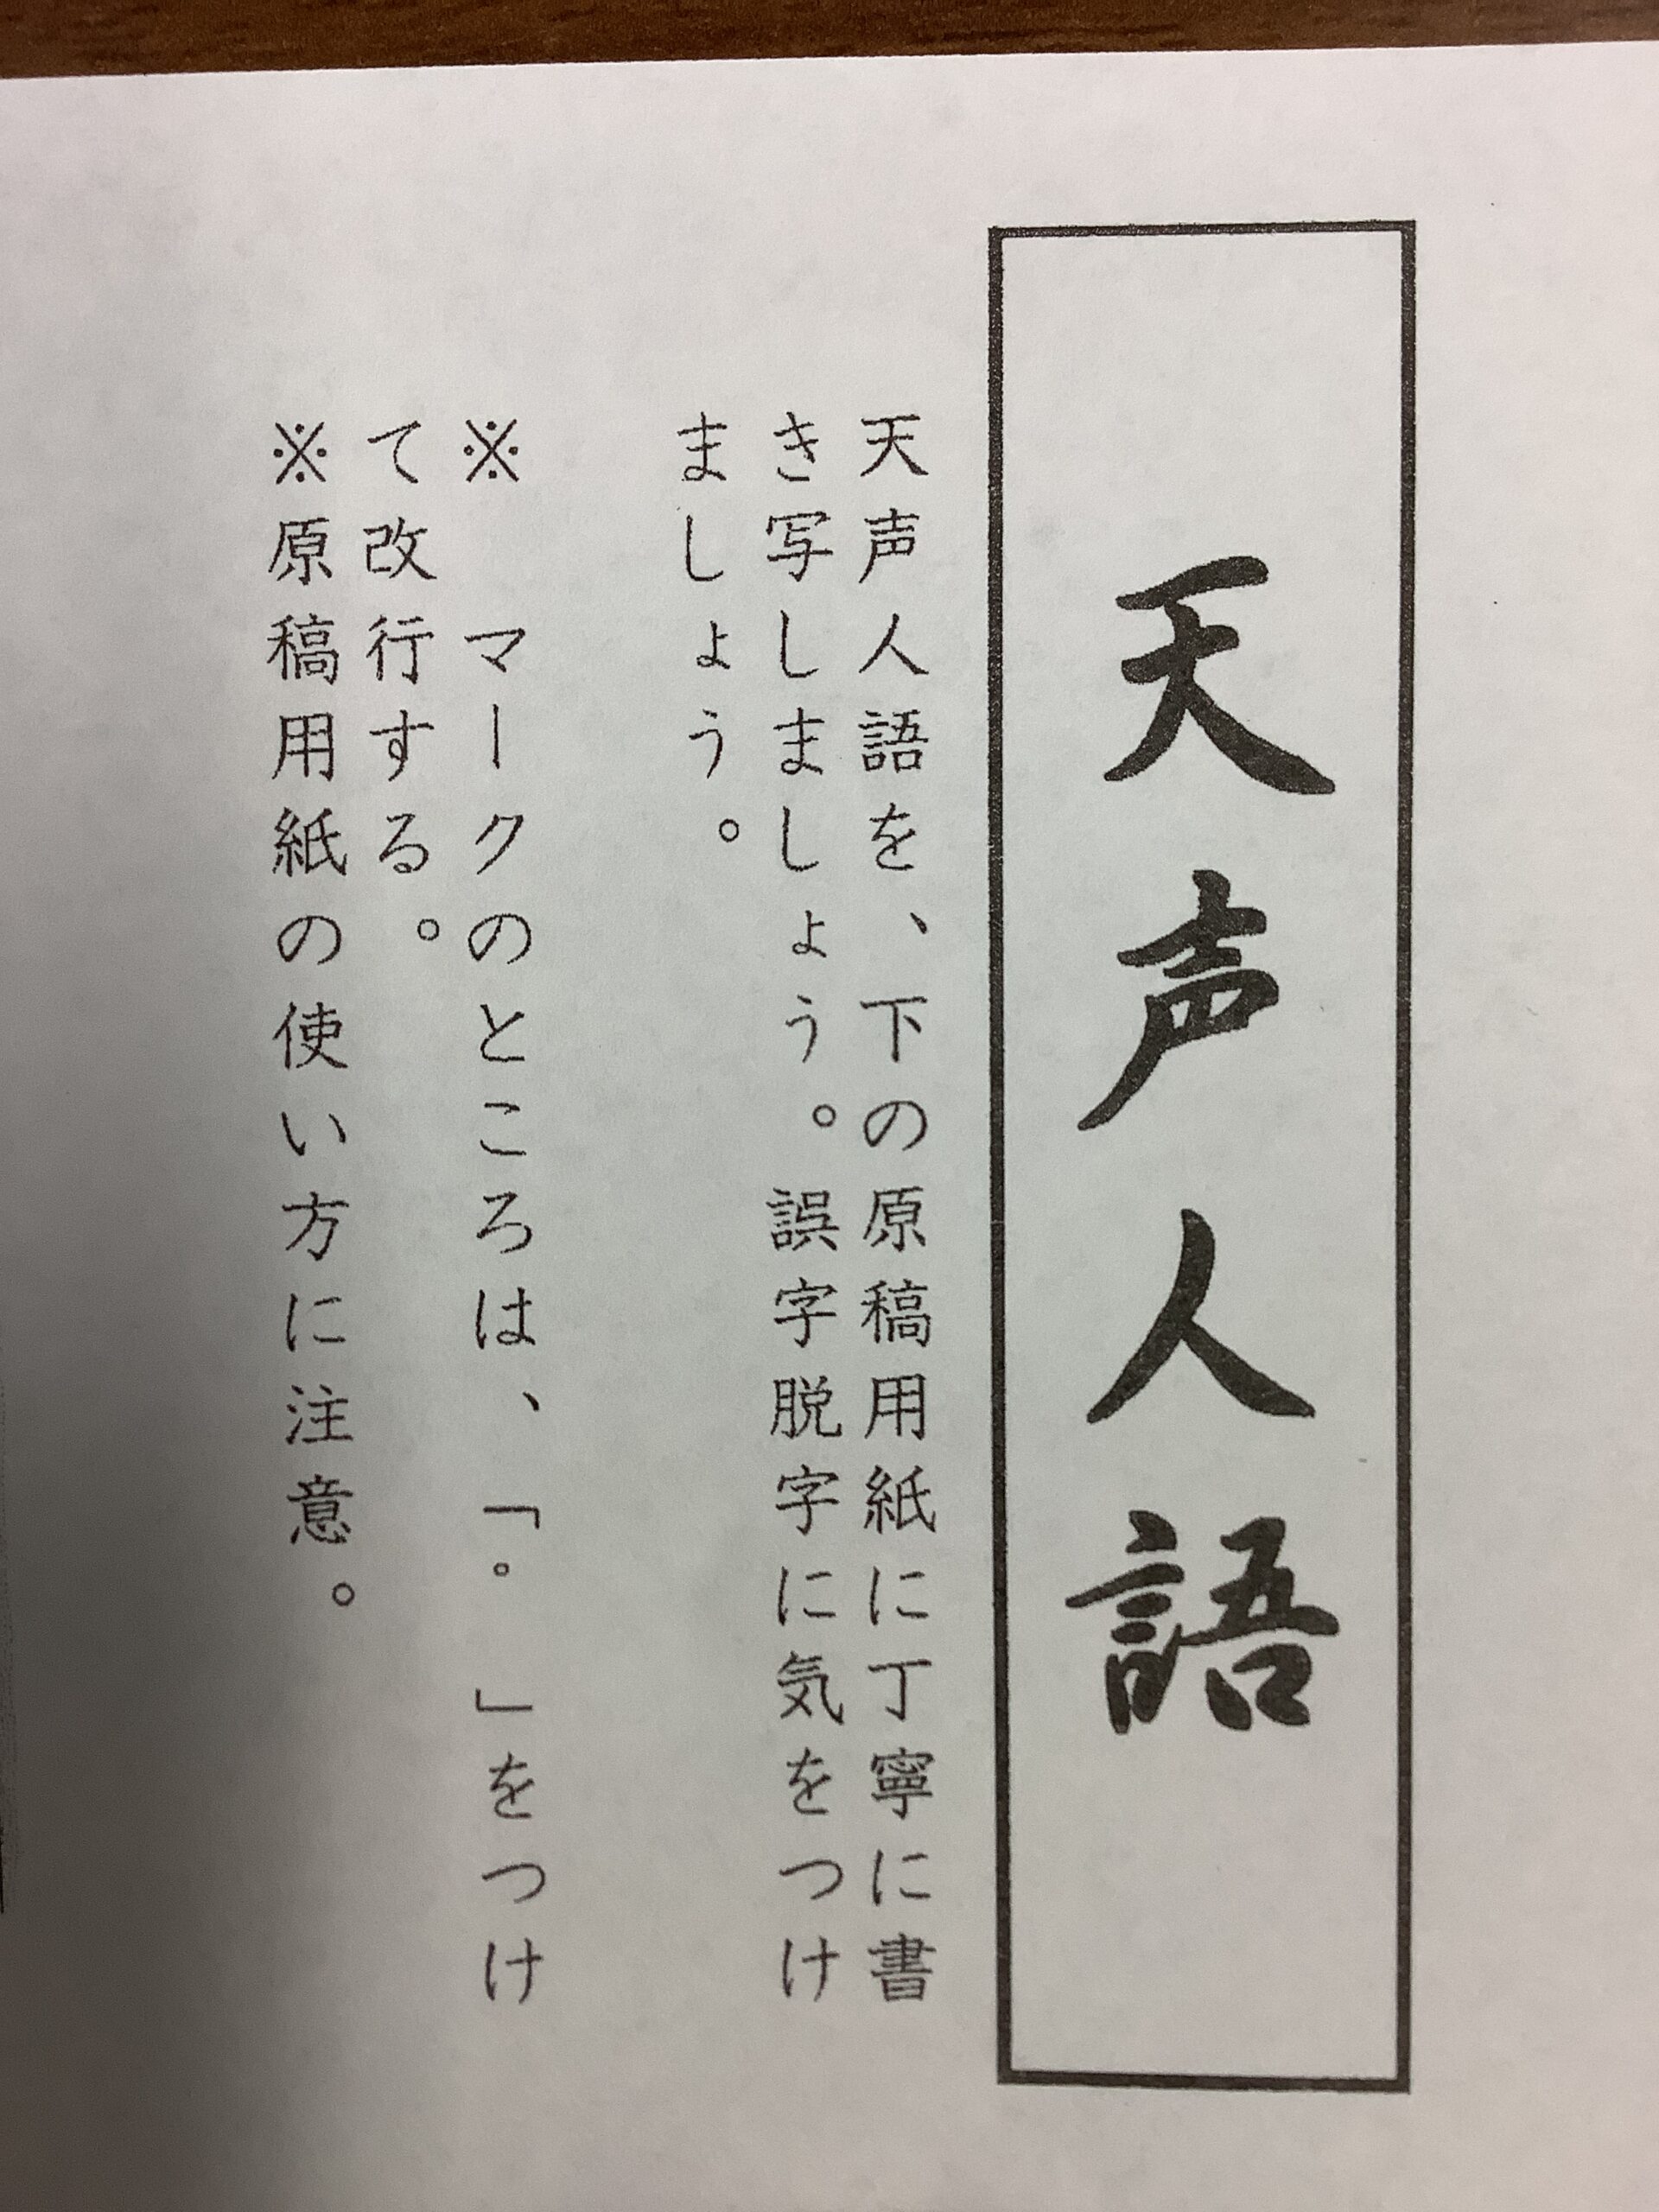 天声人語
天声人語を、下の原稿用紙に丁寧に書
き写しましょう。誤字脱字に気をつけ
ましょう。
※　マークのところは、「。　」をつけ
て改行する。
※原稿用紙の使い方に注意。